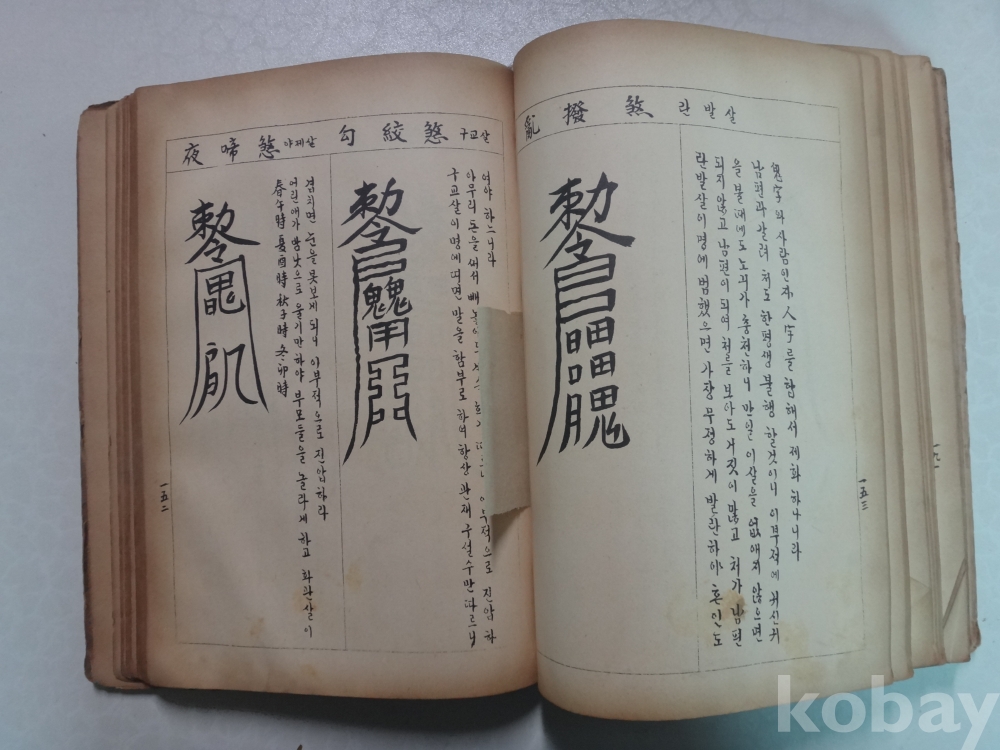 夜啼煞 야제살
春午時 夏酉時 秋子時 冬卯時
어린애가 밤낮으로 울기만하야 부모들을 놀라게 하고 화관살이
겸치면 눈을 못보게 되나니 이부적으로 진압하라
勾絞煞 구교살
구교살이 명에 띠면 말을 함부로 하여 항상 관재구설수만 따르니
아무리 돈을 써서 이부적으로 진압하
여야 하느니라
一五二
亂撥煞 란발살
란발살이 명에 범했으면 가장 무정하게 발란하야 혼인도
되지않고 남편이 되여 처를 보아도 거짓이 많고 처가 남편
을 볼때에도 노끼가 충천하니 만일 이살을 없애지 않으면
남편과 살려 처도 한평생 불행 할것이니 이부적에 귀신귀
鬼字와 사람인자 人字를 합해서 제화 하나니라
一五三
kobay